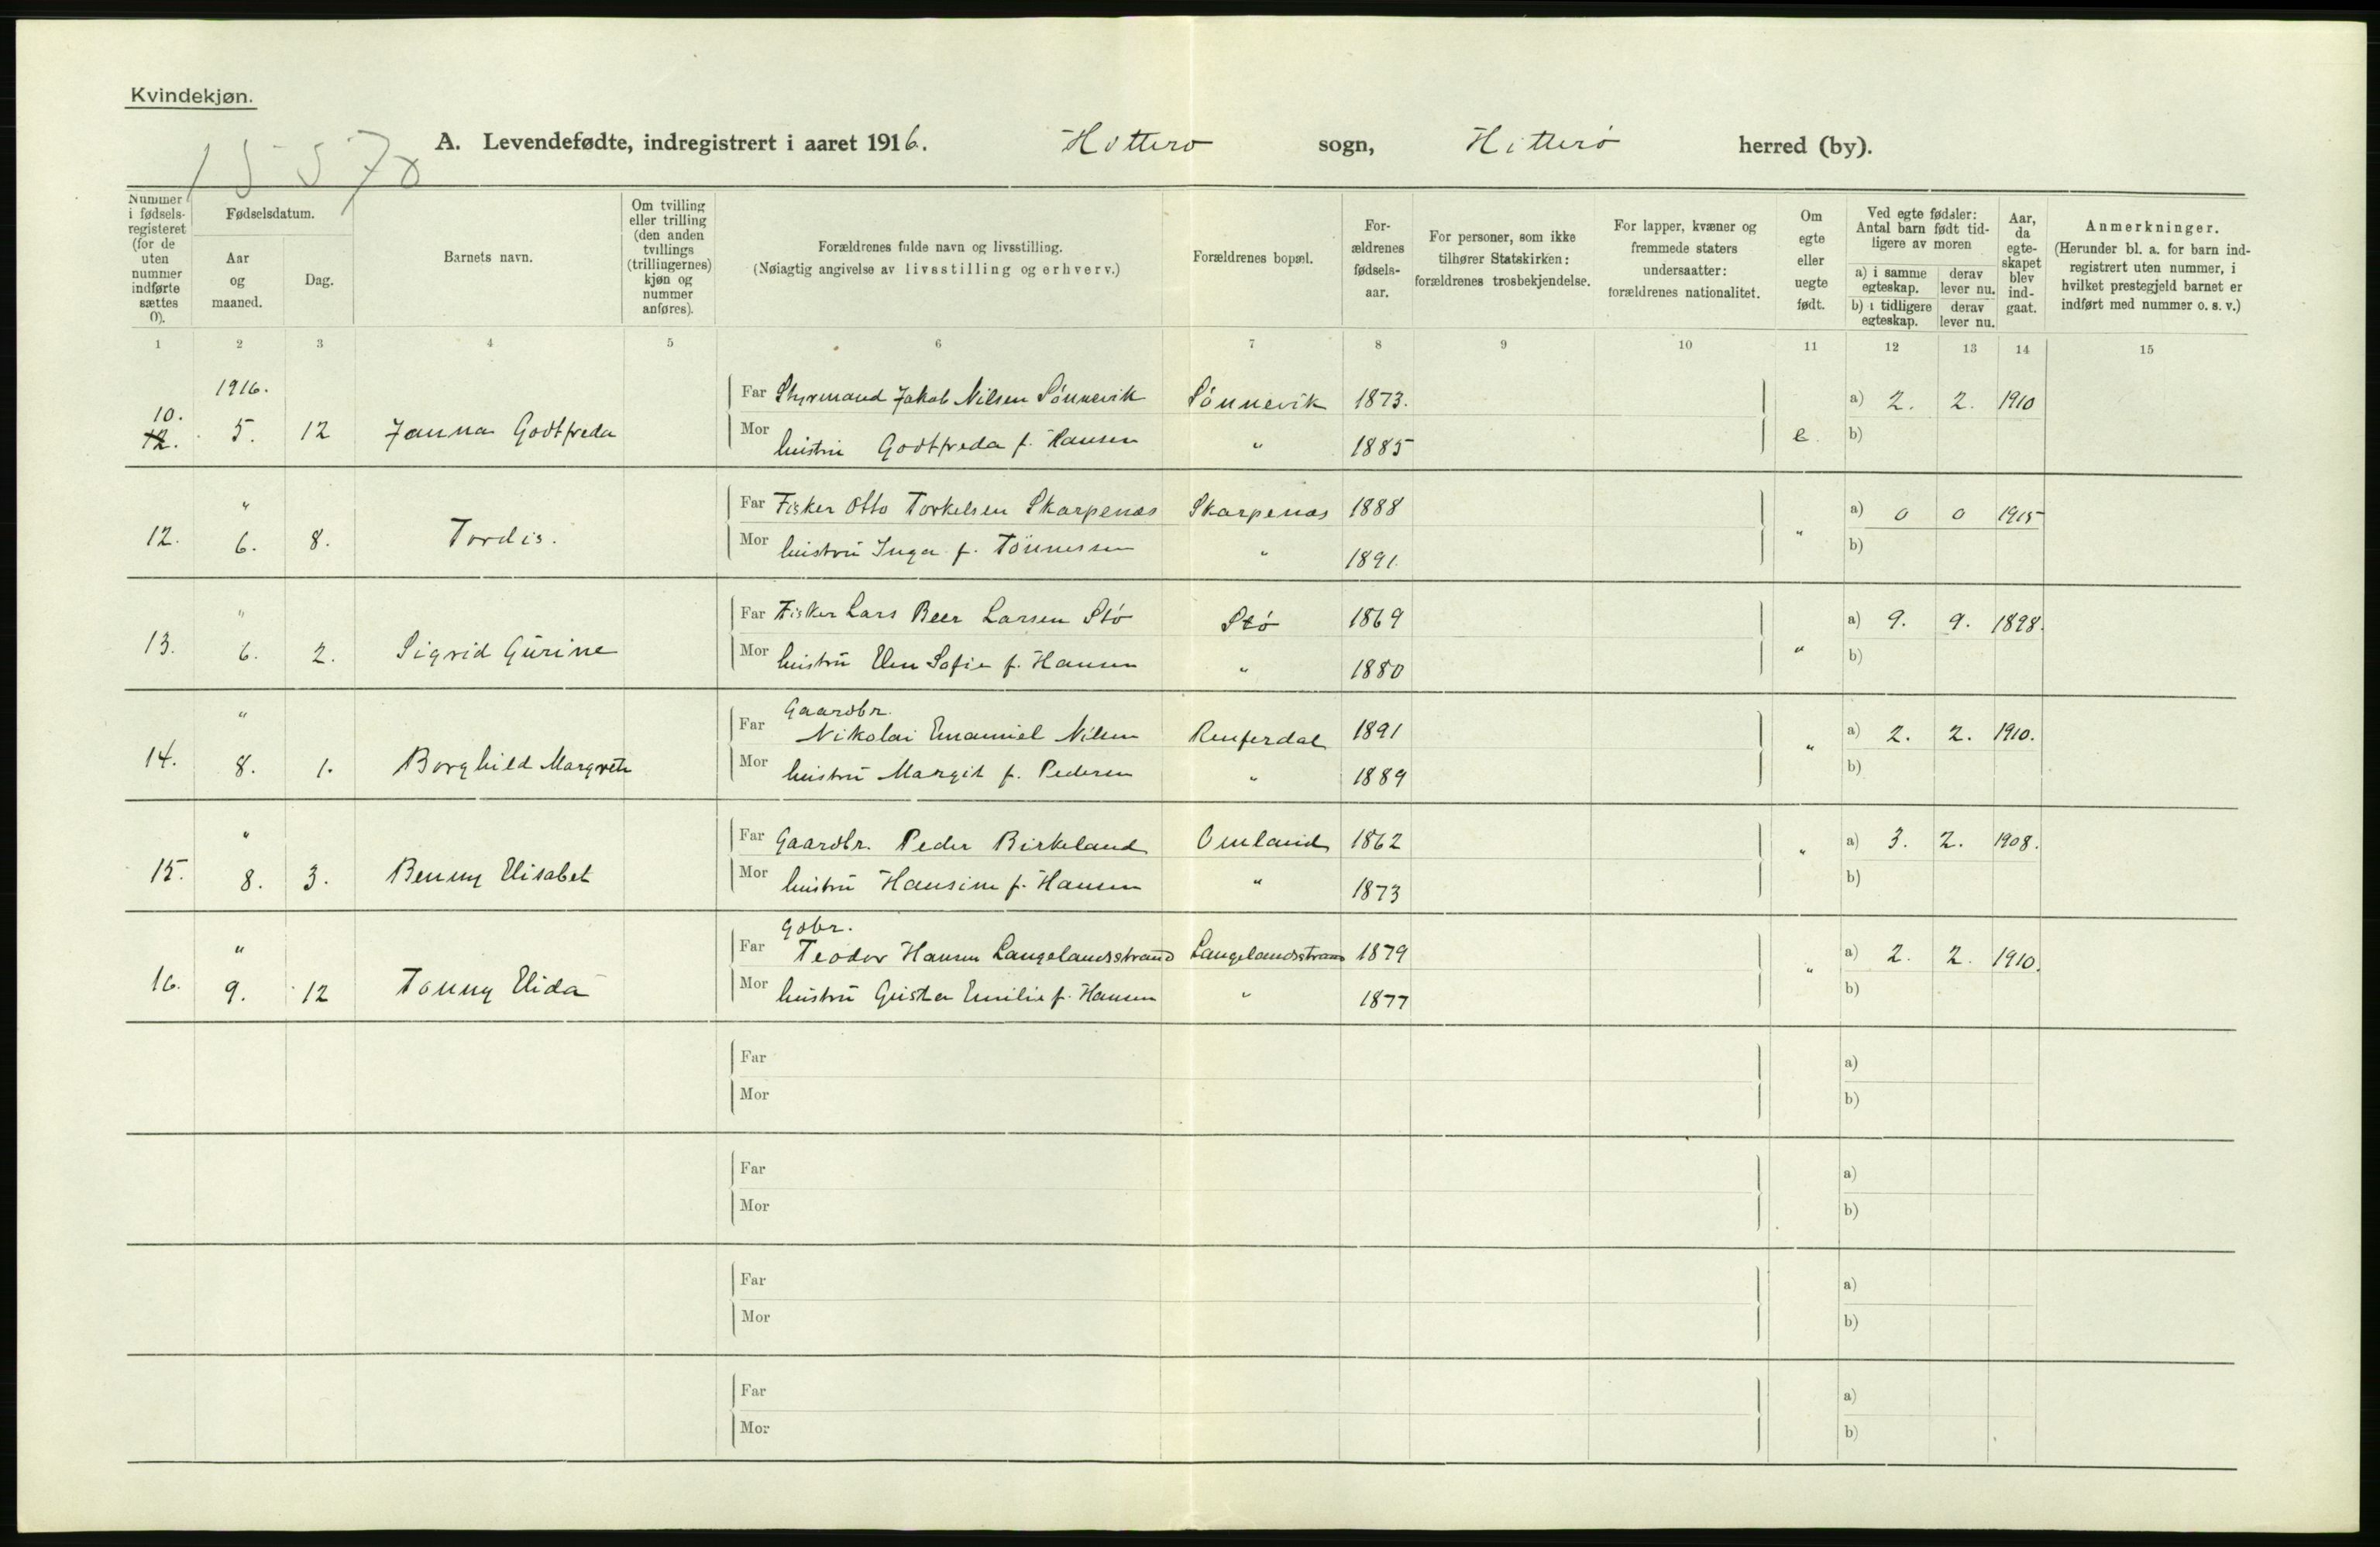 Kvindekjøn.
15578
A. Levendefødte, indregistrert i aaret 1916. Hitterø sogn, Hitterø herred (by).
Nummer i fødsels-registeret (for de uten nummer indførte sættes 0).
Fødselsdatum.
Aar og maaned.
Dag.
Barnets navn.
Om tvilling eller trilling (den anden tvillings (trillingernes) kjøn og nummer anføres).
Forældrenes fulde navn og livsstilling.
(Nøiagtig angivelse av livsstilling og erhverv.)
Forældrenes bopæl.
For-ældrenes fødsels-aar.
For personer, som ikke tilhører Statskirken: forældrenes trosbekjendelse.
For lapper, kvæner og fremmede staters undersaatter: forældrenes nationalitet.
Om egte eller uegte født.
Ved egte fødsler: Antal barn født tid-ligere av moren
a) i samme egteskap.
derav lever nu.
b) i tidligere egteskap.
derav lever nu.
Aar, da egte-skapet blev ind-gaat.
Anmerkninger.
(Herunder bl. a. for barn ind-registrert uten nummer, i hvilket prestegjeld barnet er indført med nummer o. s. v.)
1 2 3 4 5 6 7 8 9 10 11 12 13 14 15
1916.
10.
12. 5. 12 Janna Godtfreda
Far Styrmand Jakob Nilsen Sønnevik Sønnevik 1873. a) 2. 2. 1910
Mor hustru Godtfreda f. Hansen " 1885 e. b)
"
12. 6. 8. Tordis.
Far Fisker Otto Torkelsen Skarpenes Skarpenes 1888 a) 0 0 1915
Mor hustru Inga f. Tønnessen " 1891. " b)
"
13. 6. 2. Sigrid Gurine
Far Fisker Lars Beer Larsen Stø Stø 1869 a) 9. 9. 1898.
Mor hustru Elen Sofie f. Hansen " 1880 " b)
"
14. 8. 1. Borghild Margrete
Gaardbr.
Far Nikolai Emanuel Nilsen Renferdal 1891 " a) 2. 2. 1910.
Mor hustru Margit f. Pedersen " 1889 b)
"
15. 8. 3. Benny Elisabet
Far Gaardbr. Peder Birkeland Omland 1862 " a) 3. 2. 1908.
Mor hustru Hansine f. Hansen " 1873 b)
"
16. 9. 12 Tonny Elida
Gdbr.
Far Teodor Hansen Langelandsstrand Langelandsstrand 1879 " a) 2. 2. 1910.
Mor hustru Gusta Emilie f. Hansen " 1877 b)
Far a)
Mor b)
Far a)
Mor b)
Far a)
Mor b)
Far a)
Mor b)